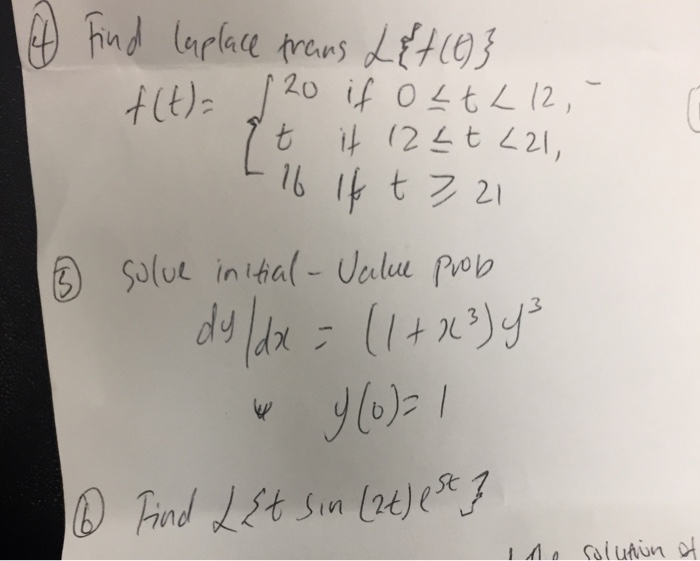 ④ Find laplace trans L{f(t)}
f(t)= { 20 if 0 ≤ t < 12,
t if 12 ≤ t < 21,
16 if t ≥ 21
⑤ Solve initial - Value prob
dy/dx = (1 + x³) y³
y(0) = 1
⑥ Find L{t sin (2t) e^5t}
solution of